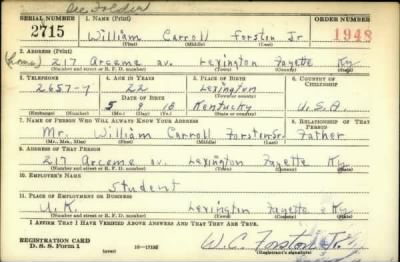 See Folder
SERIAL NUMBER 1. NAME (Print) ORDER NUMBER
2715 William Carroll Forston Jr 1948
(First) (Middle) (Last)
2. ADDRESS (Print)
(Home) 217 Arceme av. Lexington Fayette Ky
(Number and street or R. F. D. number) (Town) (County) (State)
3. TELEPHONE 4. AGE IN YEARS 5. PLACE OF BIRTH 6. COUNTRY OF CITIZENSHIP
2657-Y 22 Lexington
DATE OF BIRTH (Town or county)
5 9 18 Kentucky U.S.A
(Exchange) (Number) (Mo.) (Day) (Yr.) (State or country)
7. NAME OF PERSON WHO WILL ALWAYS KNOW YOUR ADDRESS 8. RELATIONSHIP OF THAT PERSON
Mr. William Carroll Forston Sr. Father
(Mr., Mrs., Miss) (First) (Middle) (Last)
9. ADDRESS OF THAT PERSON
217 Arceme av. Lexington Fayette Ky
(Number and street or R. F. D. number) (Town) (County) (State)
10. EMPLOYER'S NAME
Student
11. PLACE OF EMPLOYMENT OR BUSINESS
U.K. Lexington Fayette Ky
(Number and street or R. F. D. number) (Town) (County) (State)
I AFFIRM THAT I HAVE VERIFIED ABOVE ANSWERS AND THAT THEY ARE TRUE.
REGISTRATION CARD
D. S. S. Form 1 (over) 16-17105 W.C. Forston Jr.
(Registrant's signature)